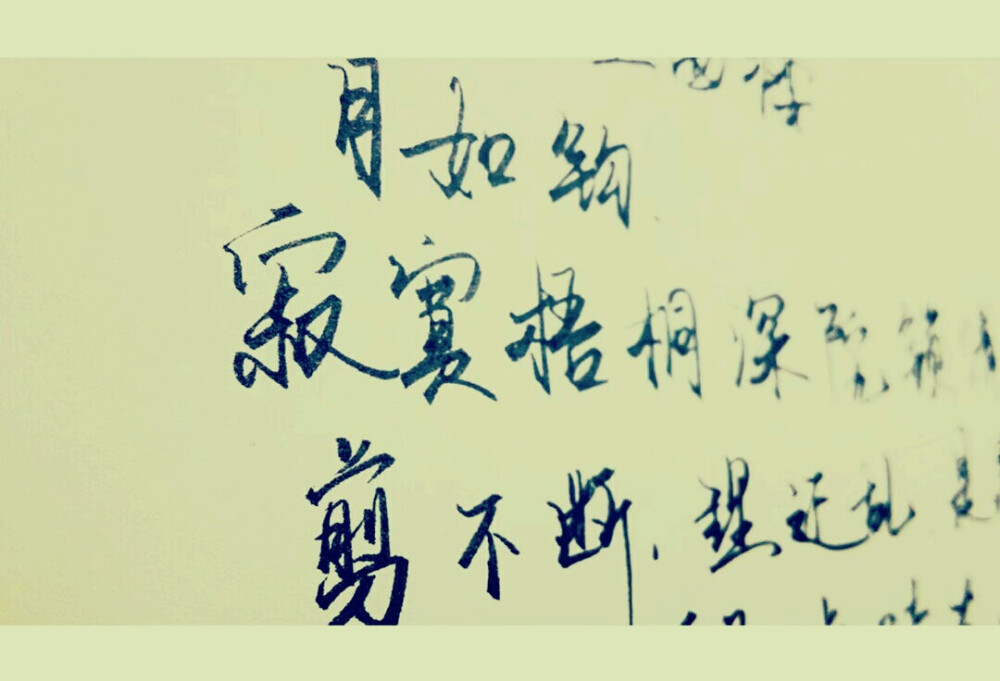 月如钩
寂寞梧桐深院锁
剪不断,理还乱 是